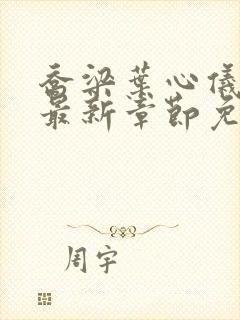 乔梁叶心仪
最新章节免
周宇